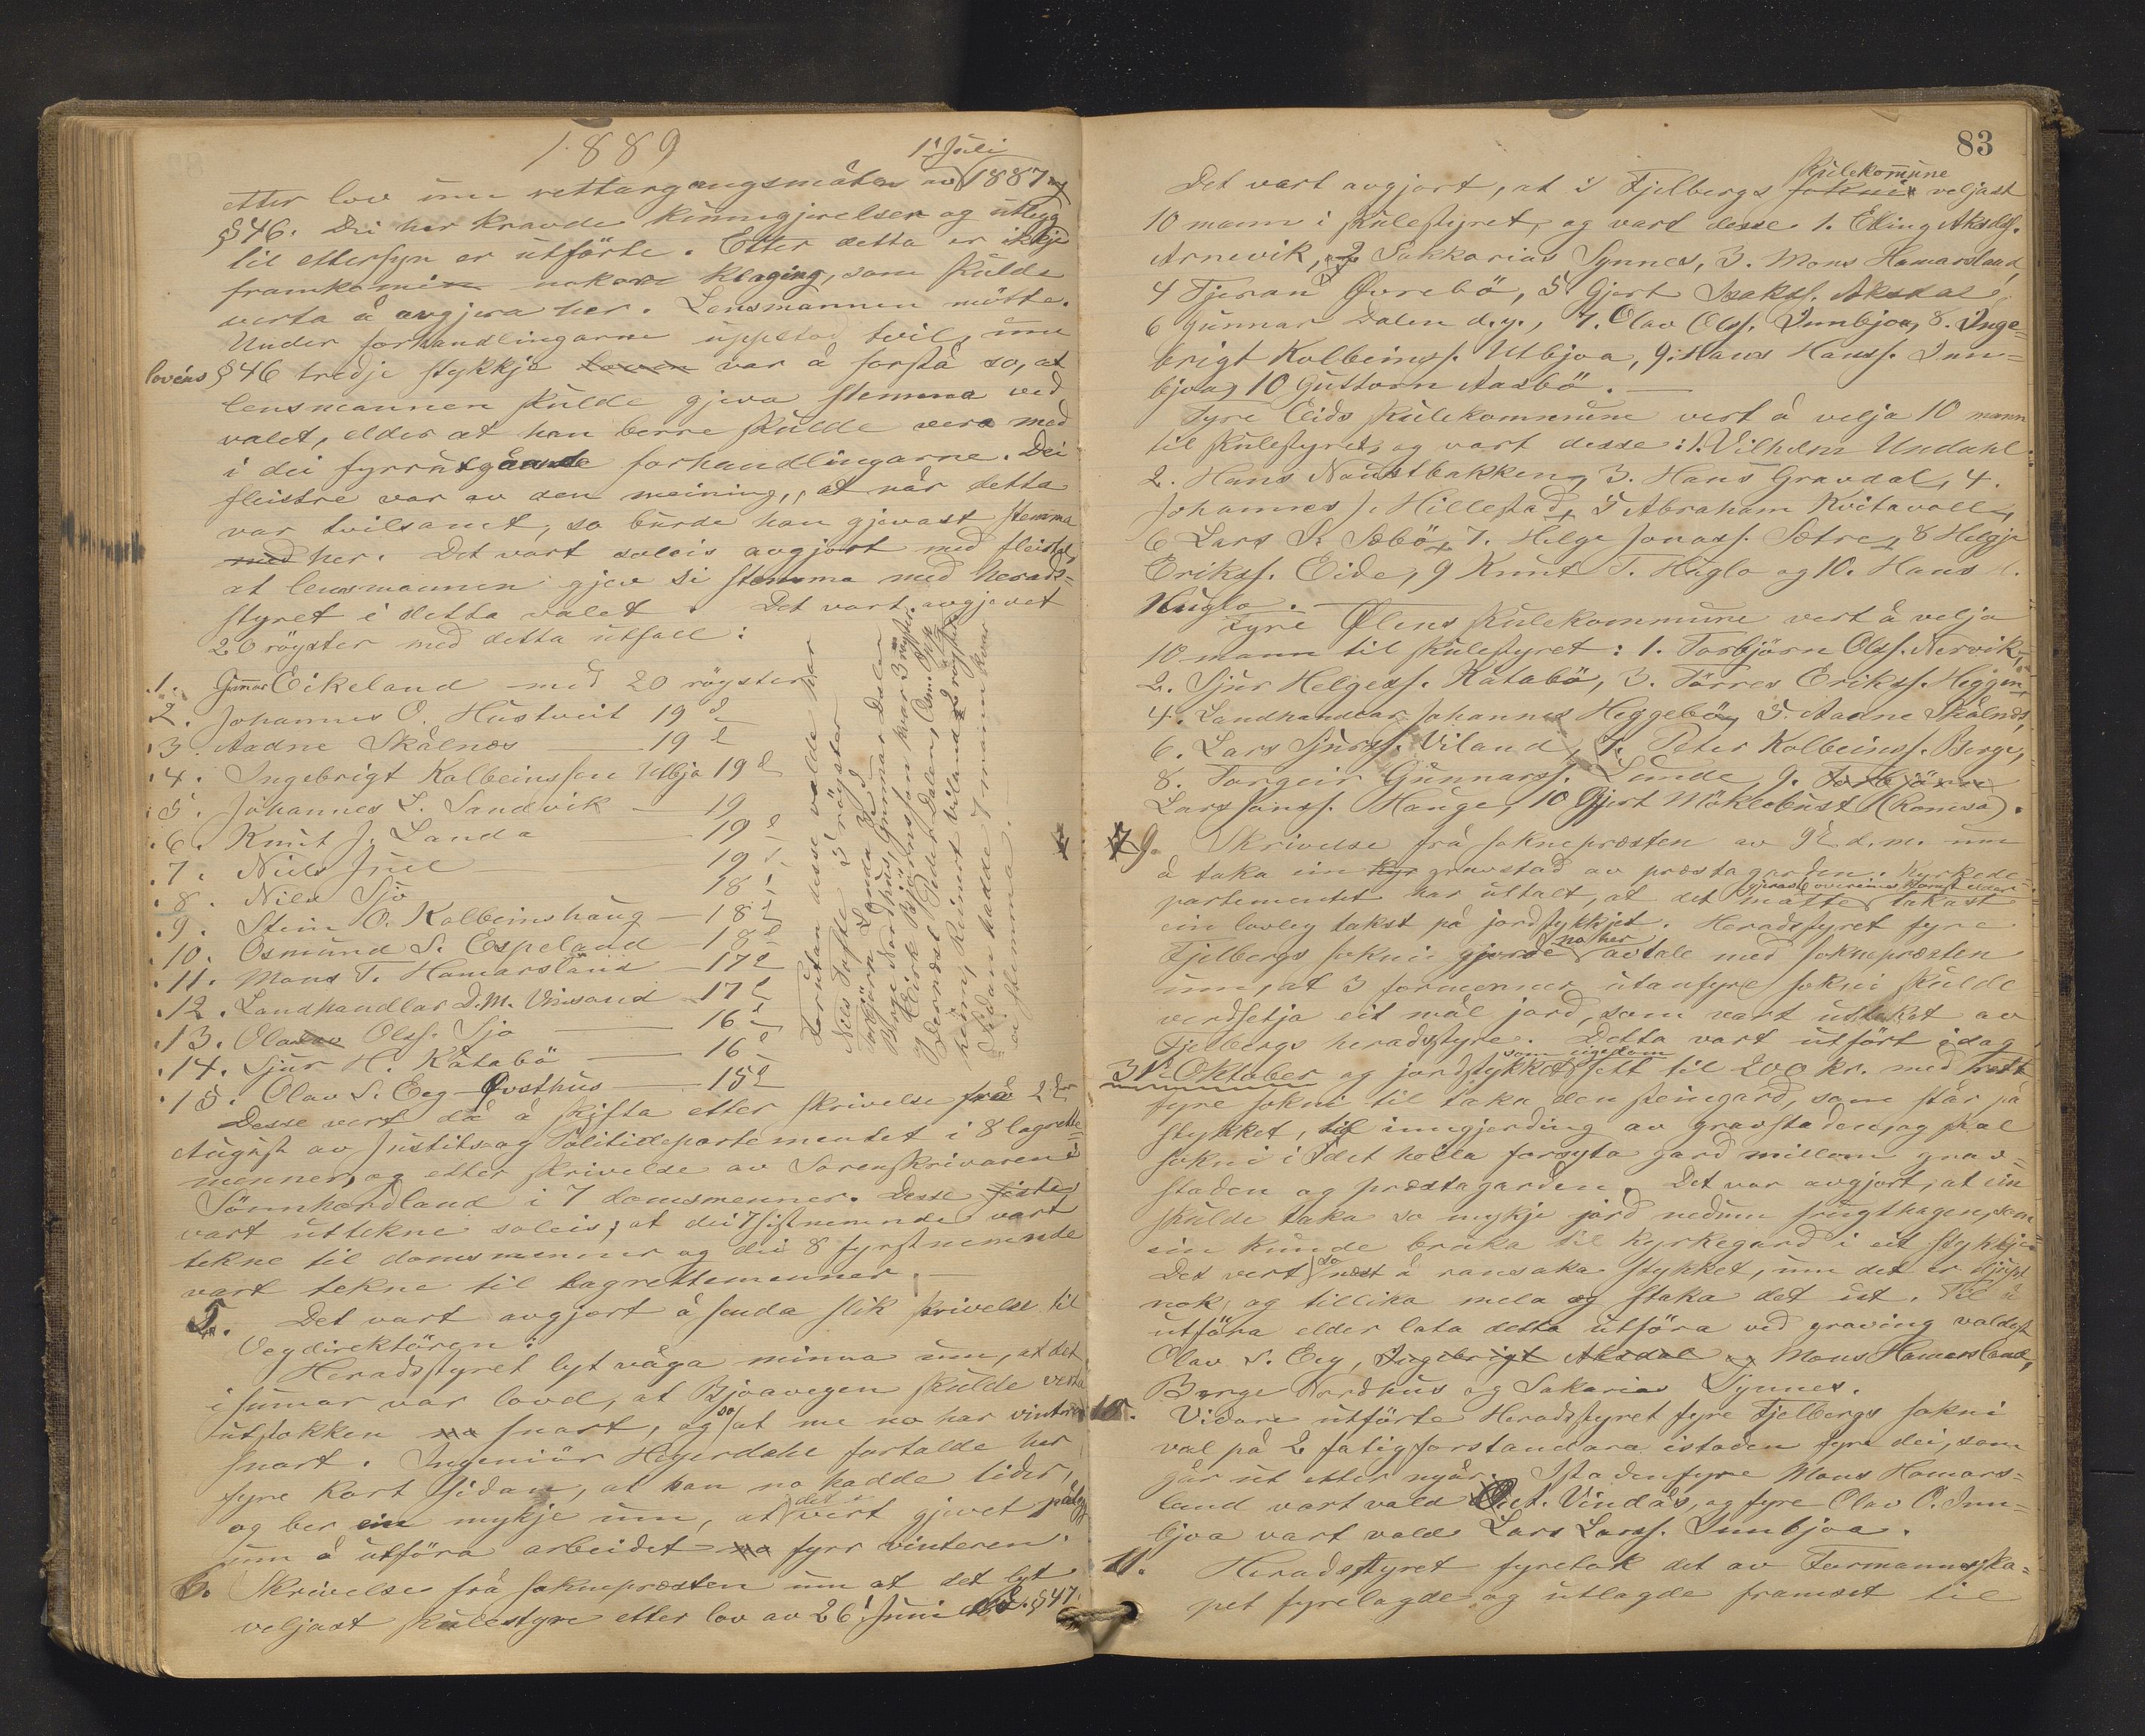 1889
1ste Juli
etter lov um rettargangsmåten av 1887 og
§ 46. Dei her kravde kunngjerelser og utlegg
til ettersyn er utförte. Etter detta er ikkje
framkomin nokor klaging, som skulde
verta å avgjera her. Lensmannen mötte.
Under forhandlingarne uppstod tvil, um
lovéns § 46 tredje stykkje loven var å forstå so, at
lensmannen skulde gjeva stemma ved
valet, elder at han berre skulde vera med
i dei fyrrutgåande forhandlingarne. Dei
fleistre var av den meining, at når detta
var tvilsamt, so burde han gjevast stemma
med her. Det vart soleis avgjort med fleistal,
at lensmannen gjev si stemma med herads=
styret i detta valet. Det vart avgjevet
20 röyster med detta utfall:
1. Gunnar Eikeland med 20 röyster
2. Johannes O. Hustveit 19 d
3. Aadne Skålnes 19 d
4. Ingebrigt Kolbeinssen Utbjo 19 d
5. Johannes L. Sandvik 19
6. Knut J. Landa 19 d
7. Nils Juel 19
8. Nils Sjo 18
9. Stein O. Kolbeinshaug 18 d
10. Osmund S. Espeland 18 d
11. Mons T. Hamarsland 17 d
12. Landhandlar D. M. Vinsand 17 d
13. Ola Olss. Sjo 16 d
14. Sjur H. Katabö 16 d
15. Olav S. Eeg Övsthus 15 d
Forutan desse valde har
Nils Tofte 5 röyster
Torbjörn Landa 3 d
Börge Nordhus, Gunnar Dalen
Eirik Björnsson kvar 3 röyster
Dernæst Peder Dalen, Osm. Opsk
heim, Reimert Viland 2 röyster
Sidan hadde 7 mann kvar
ei stemma.
Desse vert då å skifta etter skrivelse frå 2dre
August av Justits og Politidepartementet i 8 lagrette=
menner, og etter skrivelse av Sorenskrivaren i
Sönnhordland i 7 domsmenner. Desse siste
vart uttekne soleis, at dei 7 sistnemnde vart
tekne til domsmenner og dei 8 fyrstnemnde
vart tekne til lagrettemenner.
5. Det vart avgjort å senda slik skrivelse til
Vegdirektören:
Heradsstyret lyt våga minna um, at det
i sumar var lovd, at Bjoavegen skulde verta
utstokken no snart, og so at me no har vinteren
snart. Ingeniör Hejerdahl fortalde her
fyre kort sidan, at han no hadde tider,
og ber ein mykje um, at det vert gjevet pålegg
um å utföra arbeidet no fyrr vinteren.
6. Skrivelse frå soknepræsten um at det lyt
veljast skulestyre etter lov av 26. Juni d. å. § 47.
83
Det vart avgjort, at i Fjelbergs soknir skulekommune veljast
10 mann i skulestyret, og vart desse 1. Elling Akselss.
Arnevik, 2 Sakkarias Synnes, 3. Mons Hamarsland
4 Tjeran Övrebö, 5 Gjert Isakss. Aksdal,
6 Gunnar Dalen d. y., 7. Olav Olss. Innbjoa, 8. Inge=
brigt Kolbeinss. Utbjoa, 9. Hans Hanss. Inn=
bjoa, 10 Guttorm Aasbö.
Fyre Eids skulekommune vert å velja 10 mann
til skulestyret, og vart desse: 1. Vilhelm Undahl
2. Hans Naustbakken, 3. Hans Gravdal, 4.
Johannes J. Hillestad, 5 Abraham Kvitavoll,
6 Lars S. Sæbö, 7. Helge Jonass. Sætre, 8 Helgje
Erikss. Eide, 9 Knut T. Huglo og 10. Hans
Huglo.
Fyre Ölens skulekommune vert å velja
10 mann til skulestyret: 1. Torbjörn Olss. Nervik,
2. Sjur Helgess. Katabö, 3. Törres Erikss. Heggen,
4. Landhandlar Johannes Heggebö, 5. Aadne Skålnes,
6. Lars Sjurss. Viland, 7. Peter Kolbeinss. Berge,
8. Torgeir Gunnarss. Lunde, 9. Torbjörn
Lars Janss. Hauge, 10 Gjert Möklebust (Romsa).
9. Skrivelse frå soknepræsten av 9de d. m. um
å taka ein kyr gravstad av prestagarden. Kyrkede=
partementet har uttalt, at det måtte gjerast overeinskomst elder takast
ein lovleg takst på jordstykkjet. Heradsstyret fyre
Fjelbergs sokn gjorde no her avtale med soknepræsten
um, at 3 formenner utanfyre sokni skulde
verdsetja eit mål jord, som vart uttaket av
Fjelbergs heradsstyre. Detta vart utfört idag
31te Oktober og jordstykket som eigedom sett til 200 kr. med rett
fyre sokni til taka den steingard, som står på
stykket, til inngjerding av gravstaden, og skal
sokni i det heila forsyta gard millom grav=
staden og prestagarden. Det var avgjort, at ein
skulde taka so mykje jord nedum frugthagen, som
ein kunde bruka til kyrkegard i eit stykkje.
Det vert so næst å ransaka stykket, um det er djupt
nok, og tillika mela og staka det ut. Til å
utföra elder lata detta utföra ved graving valdest
Olav S. Eeg, Ingebrigt Aksdal og Mons Hamarsland,
Börge Nordhus og Sakarias Synnes.
10. Vidare utförte Heradsstyret fyre Fjelbergs sokni
val på 2 fatigforstandara istaden fyre dei, som
går ut etter nyår. Istadenfyre Mons Hamars=
land vart vald A. Vindås, og fyre Olav O. Inn=
bjoa vart vald Lars Larss. Innbjoa.
11. Heradsstyret fyretok det av Formannsska=
pet fyrelagde og utlagde framset til